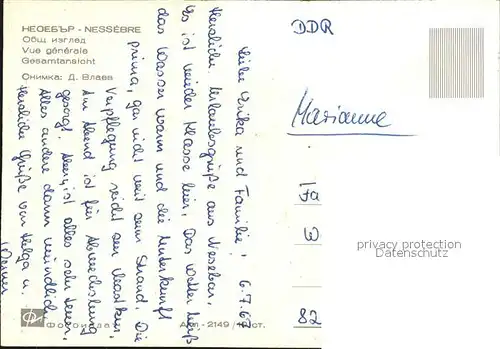 НЕСЕБЪР - NESSÈBRE
Общ изглед
Vue générale
Gesamtansicht
Снимка: Д. Влаев
Liebe Erika und Familie! 6.7.67
Herzliche Urlaubsgrüße aus Nessebar.
Es ist wieder Klasse hier. Das Wetter heiß
das Wasser warm und die Unterkunft
prima, gar nicht weit vom Strand. Die
Verpflegung reicht
Am Abend ist für Abwechslung
gesorgt. ist alles sehr teuer.
Alles andere dann mündlich.
Herzliche Grüße von Helga u.
Werner
DDR
Marianne
Fa
W
82
privacy protection
Datenschutz
Фотоиздат
2149